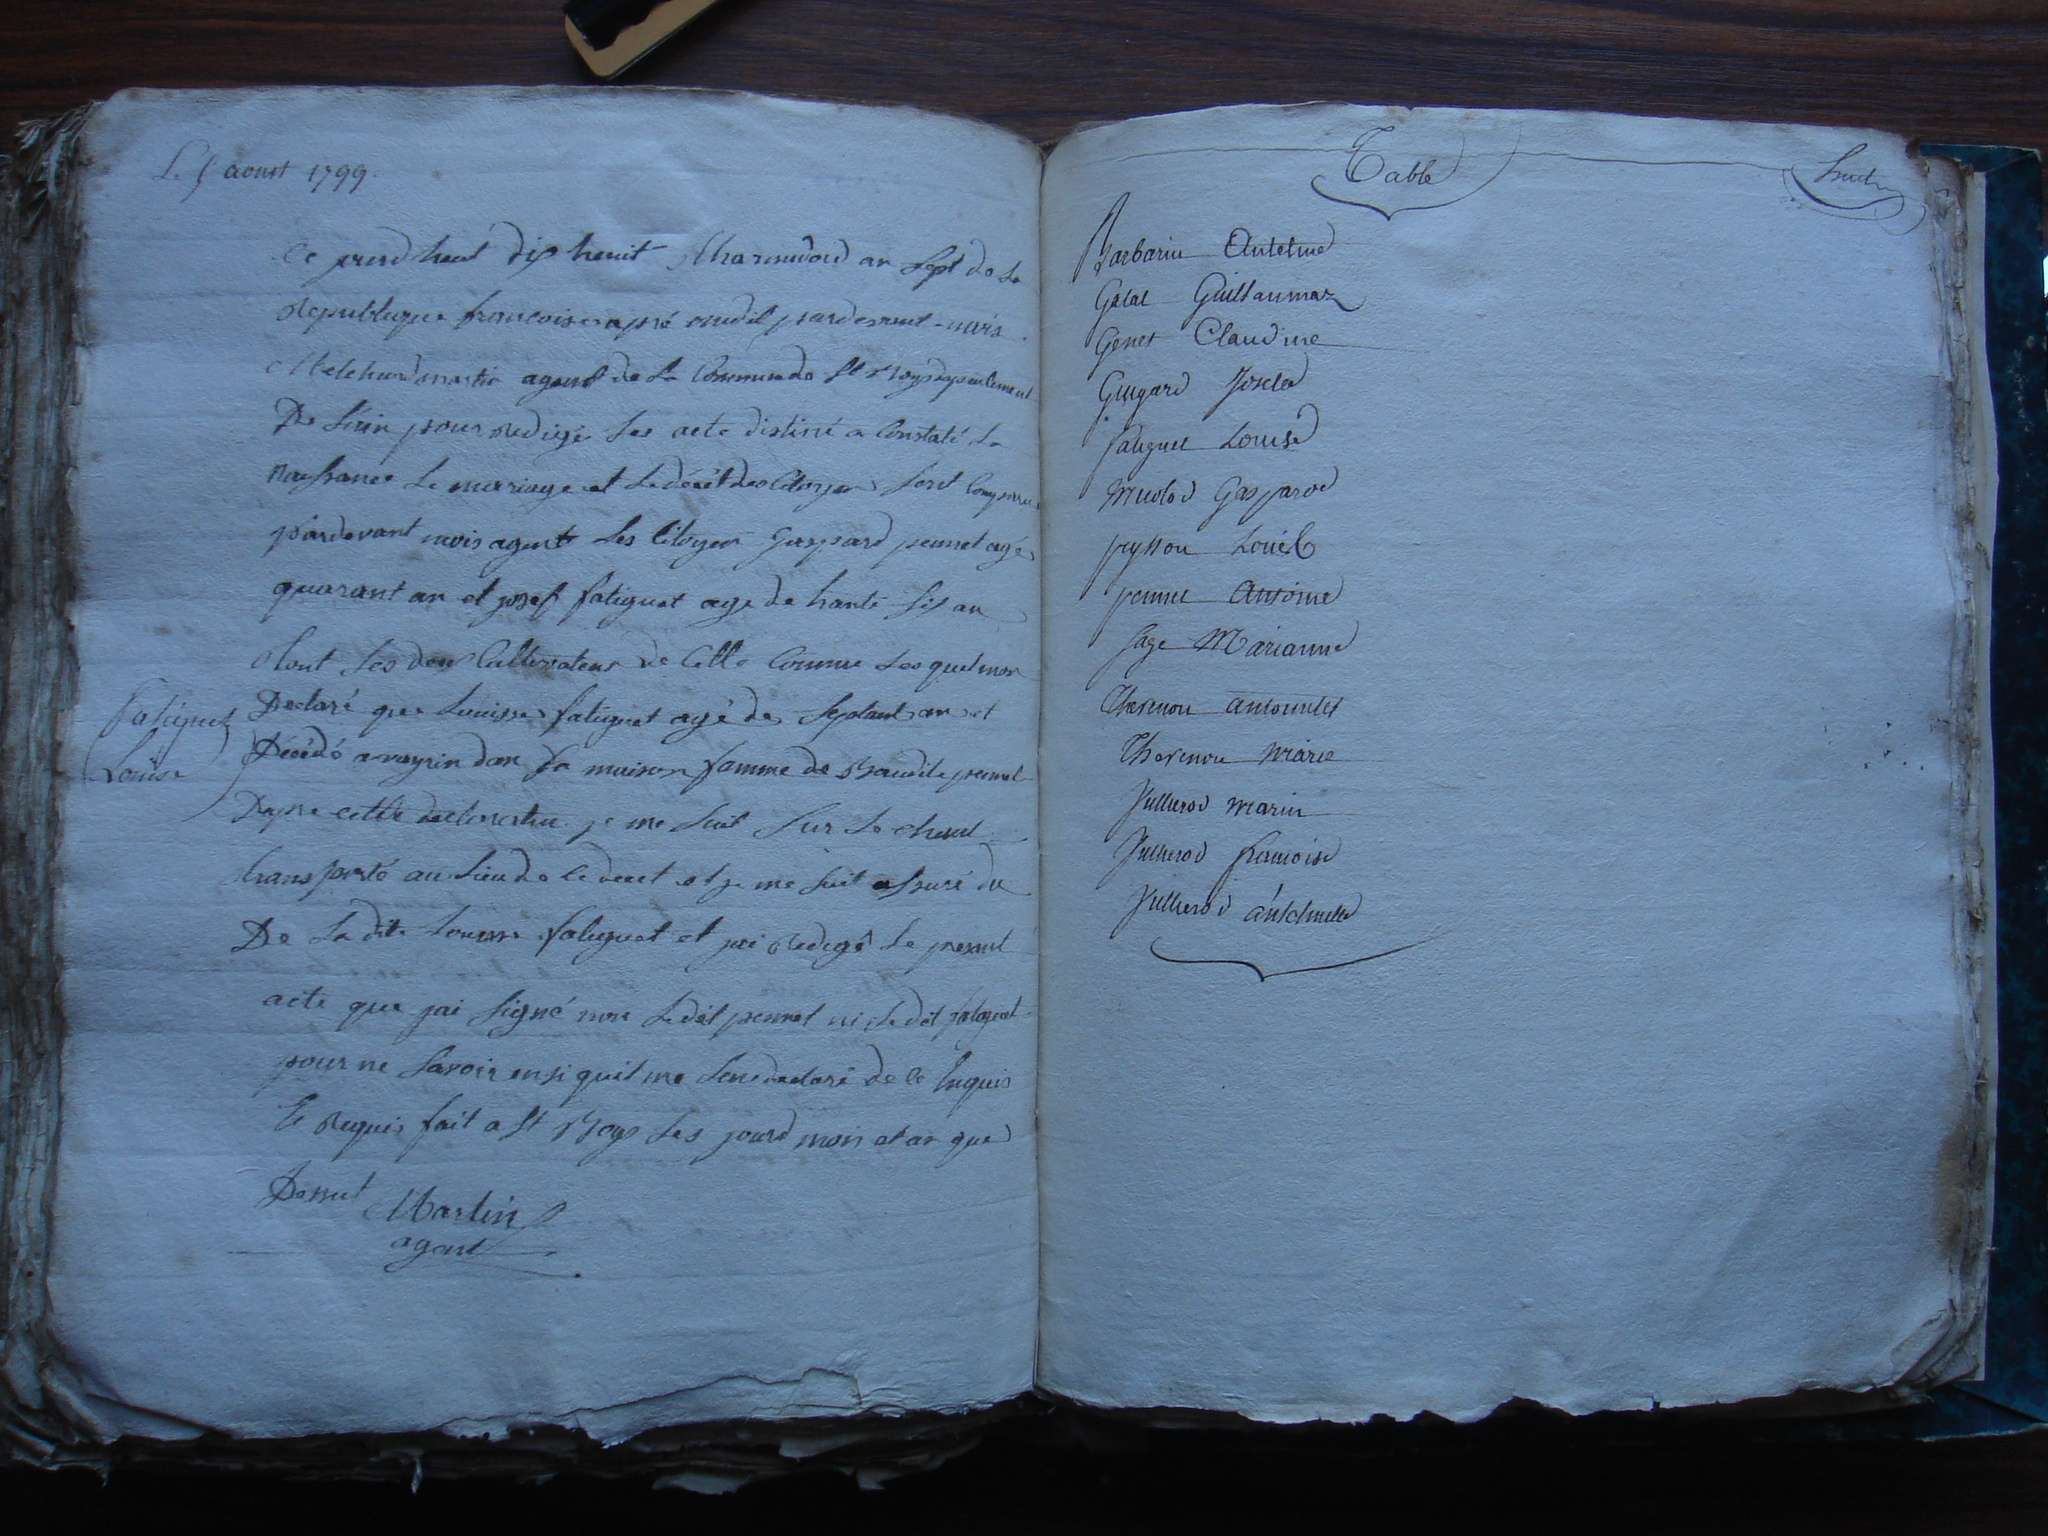 Le 5 aoust 1799.
ce jourdheui dix heuit thermidord an sept de la
Republique francoise apré midil pardevant mois
Melchierd martin agent de la Commune de St Boys depeartement
De Lain pour redigé les acte distiné a Constaté La
naissance Le mariage et Le décét des Citoyen sont Comparu
pardevant mois agent Les Citoyen gaspard pennet agé
quarant an et josef fatiguet age de trante six an
tout les deux Cultivateur de Celle Comune Les quel mon
Declaré que Louisse fatiguet agé de septant an et
Fatiguet
Louise
Décédé a vayrin dan sa maison famme de Baudile pennet
Depré cette declaration je me suit sur Le chant
transporté au Lieu de Ce decet et je me suit assuré du
De La dite Louisse fatiguet et jai redigé Le present
acte que jai signé non Ledit pennet ni Ledit fatiguet
pour ne savoir ensi quil me Lon declaré de Ce Enquis
Et Requis fait a St Boys Les jourd mois et an que
Dessut Martin
agent
Table
Barbarin Antelme
Galat Guillaumaz
Genet Claudine
Guigard Josete
fatiguet Louise
Micolod Gaspard
peysson Louis
pennet Antoine
Sage Marianne
Thevenon antoinelet
Thevenon Marie
Jullierod marin
Jullierod francoise
Jullierod antelmette